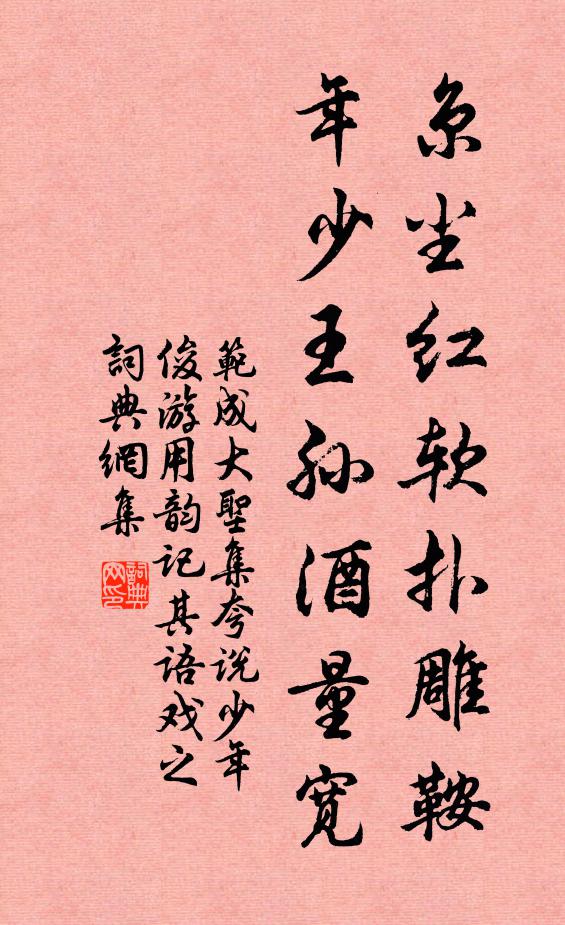 京尘红软扑雕鞍
年少王孙酒量宽
範成大聖集夸说少年
俊游用韵记其语戏之
詞典網集
詞典网印